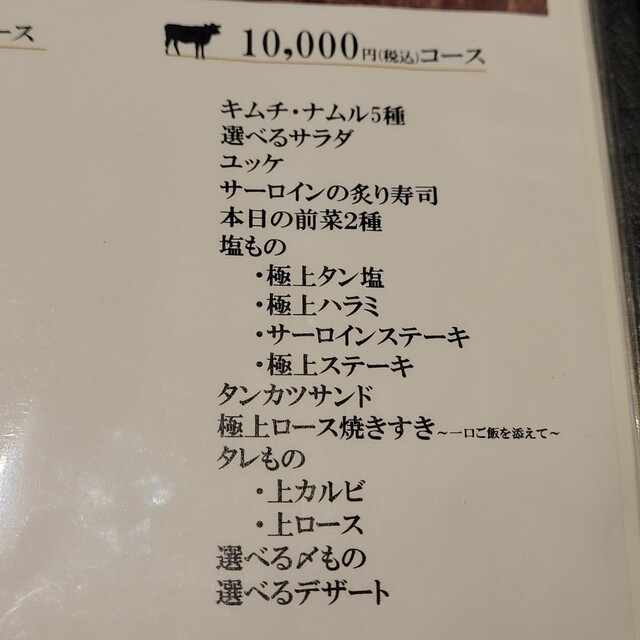 ース
10,000円(税込)コース
キムチ・ナムル5種
選べるサラダ
ユッケ
サーロインの炙り寿司
本日の前菜2種
塩もの
・極上タン塩
・極上ハラミ
・サーロインステーキ
・極上ステーキ
タンカツサンド
極上ロース焼きすき~一口ご飯を添えて~
タレもの
・上カルビ
・上ロース
選べる〆もの
選べるデザート